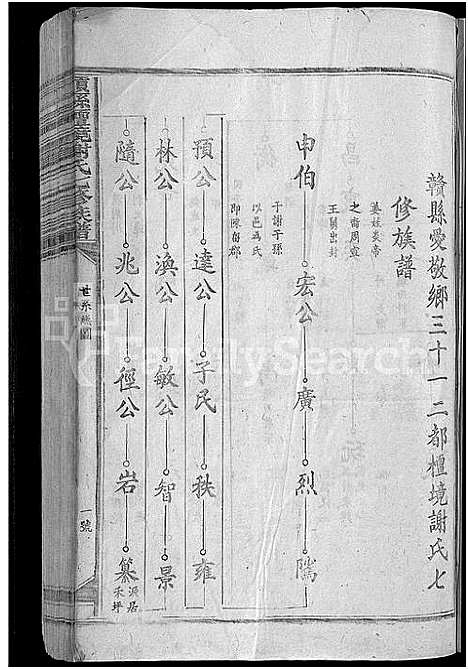 贛縣愛敬鄉三十一二都檀境謝氏七
修族譜
申伯
姜姓炎帝
之裔周宣
王舅出封
于謝子孫
以邑爲氏
即陳留郡
宏公
廣
烈
隲
預公
達公
子民
秩
雍
林公
渙公
敏公
智
景
隨公
兆公
徑公
岩
纂
派居
禾坪
贛縣檀境謝氏七修族譜
世系總圖
一號
FamilySearch